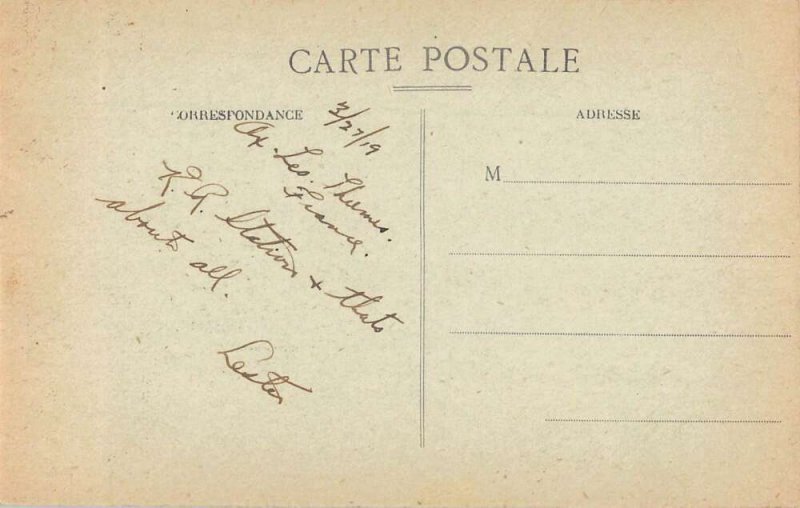 CARTE POSTALE
CORRESPONDANCE
ADRESSE
M
3/27/19
Ax. Les. Thermes.
France.
R. R. Station + thats
about all.
Lester